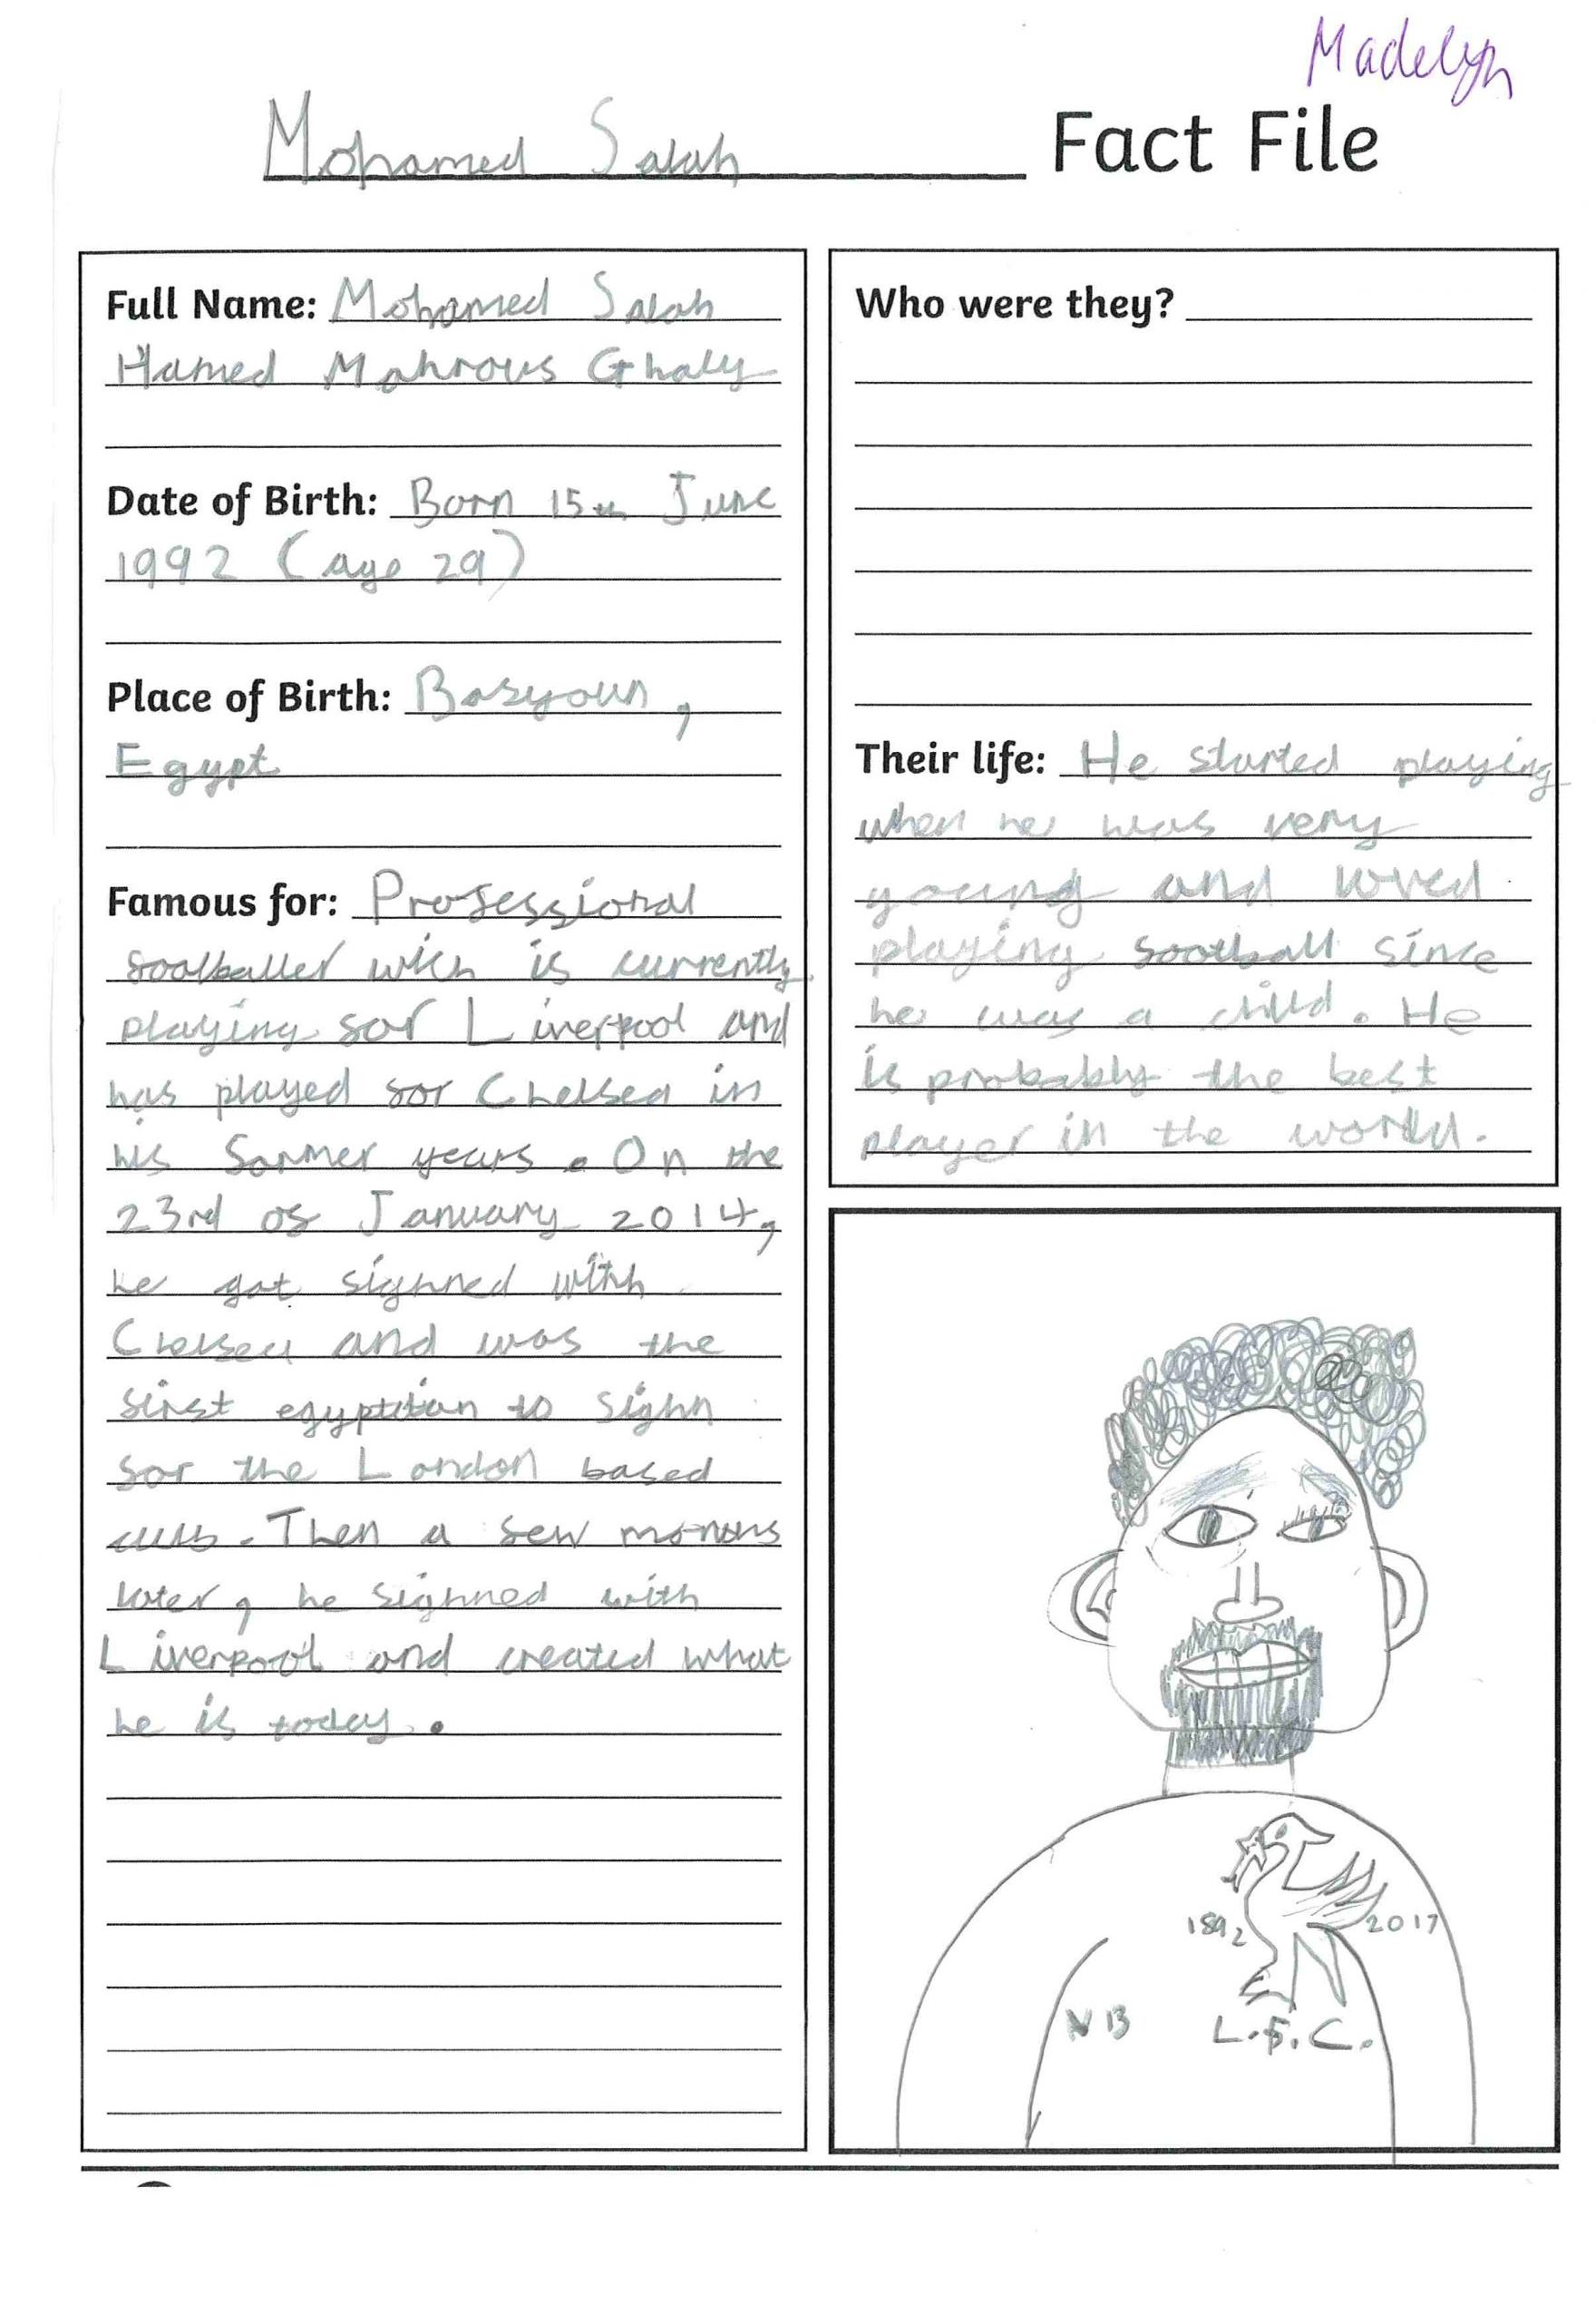 Madelyn
Mohamed Salah Fact File
Full Name: Mohamed Salah
Hamed Mahrous Ghaly
Date of Birth: Born 15th June
1992 (age 29)
Place of Birth: Basyoun,
Egypt
Famous for: Professional
footballer wich is currently
playing for Liverpool and
has played for Chelsea in
his former years. On the
23rd of January 2014,
he got sighned with
Chelsea and was the
first egyptitian to sighn
for the London based
club. Then a few months
later, he sighned with
Liverpool and created what
he is today.
Who were they?
Their life: He started playing
when he was very
young and loved
playing football since
he was a child. He
is probably the best
player in the world.
1892 2017
N 13 L.F.C.